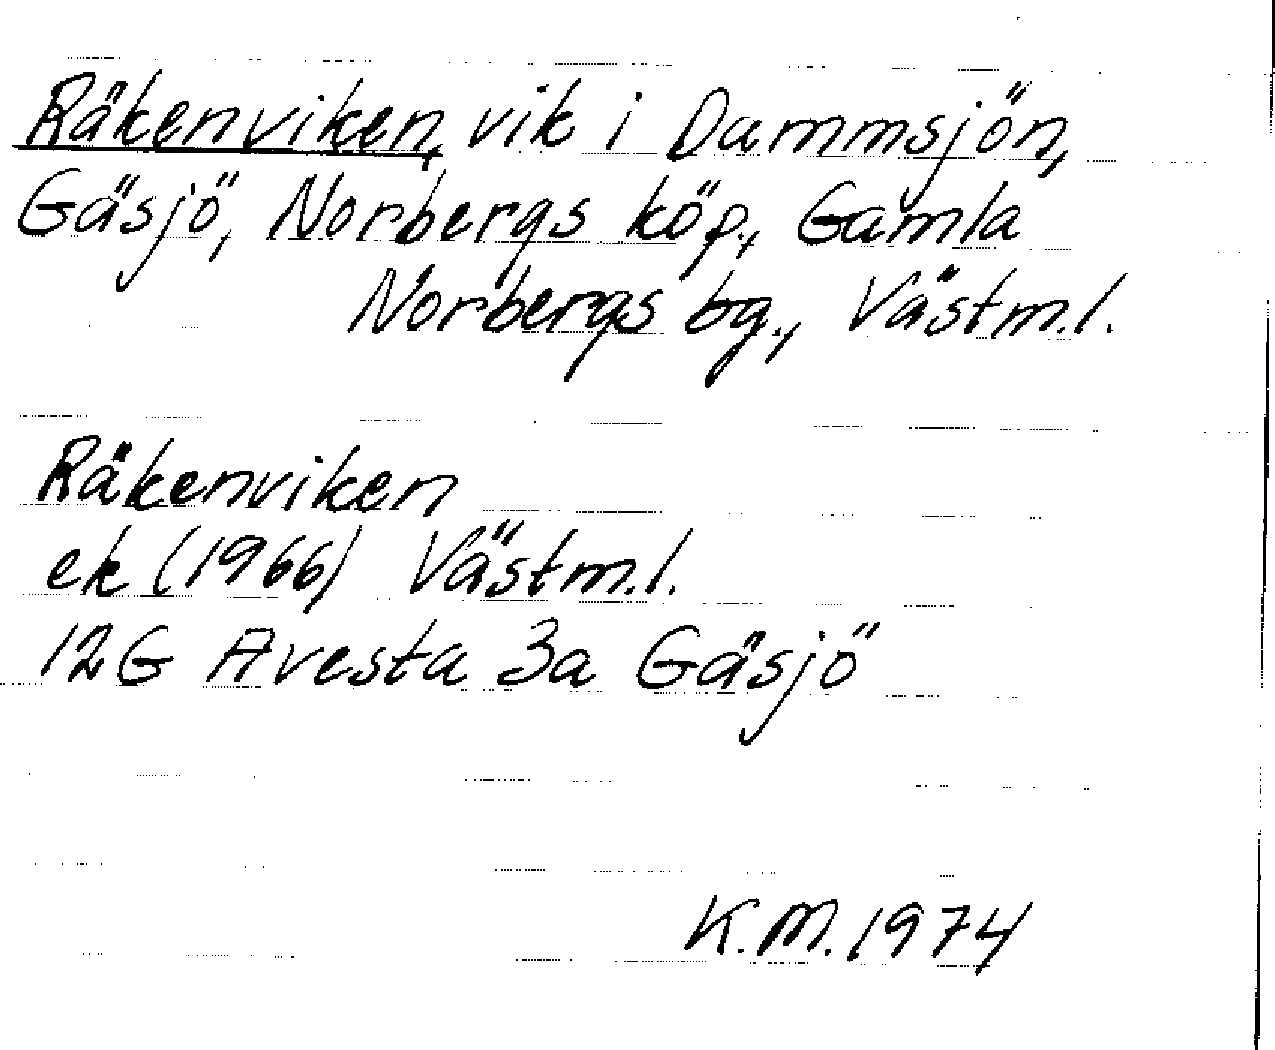 Räkenviken, vik i Dammsjön,
Gäsjö, Norbergs köp., Gamla
Norbergs bg., Västm.l.
Räkenviken
ek (1966) Västm.l.
12G Avesta 3a Gäsjö
K.M. 1974